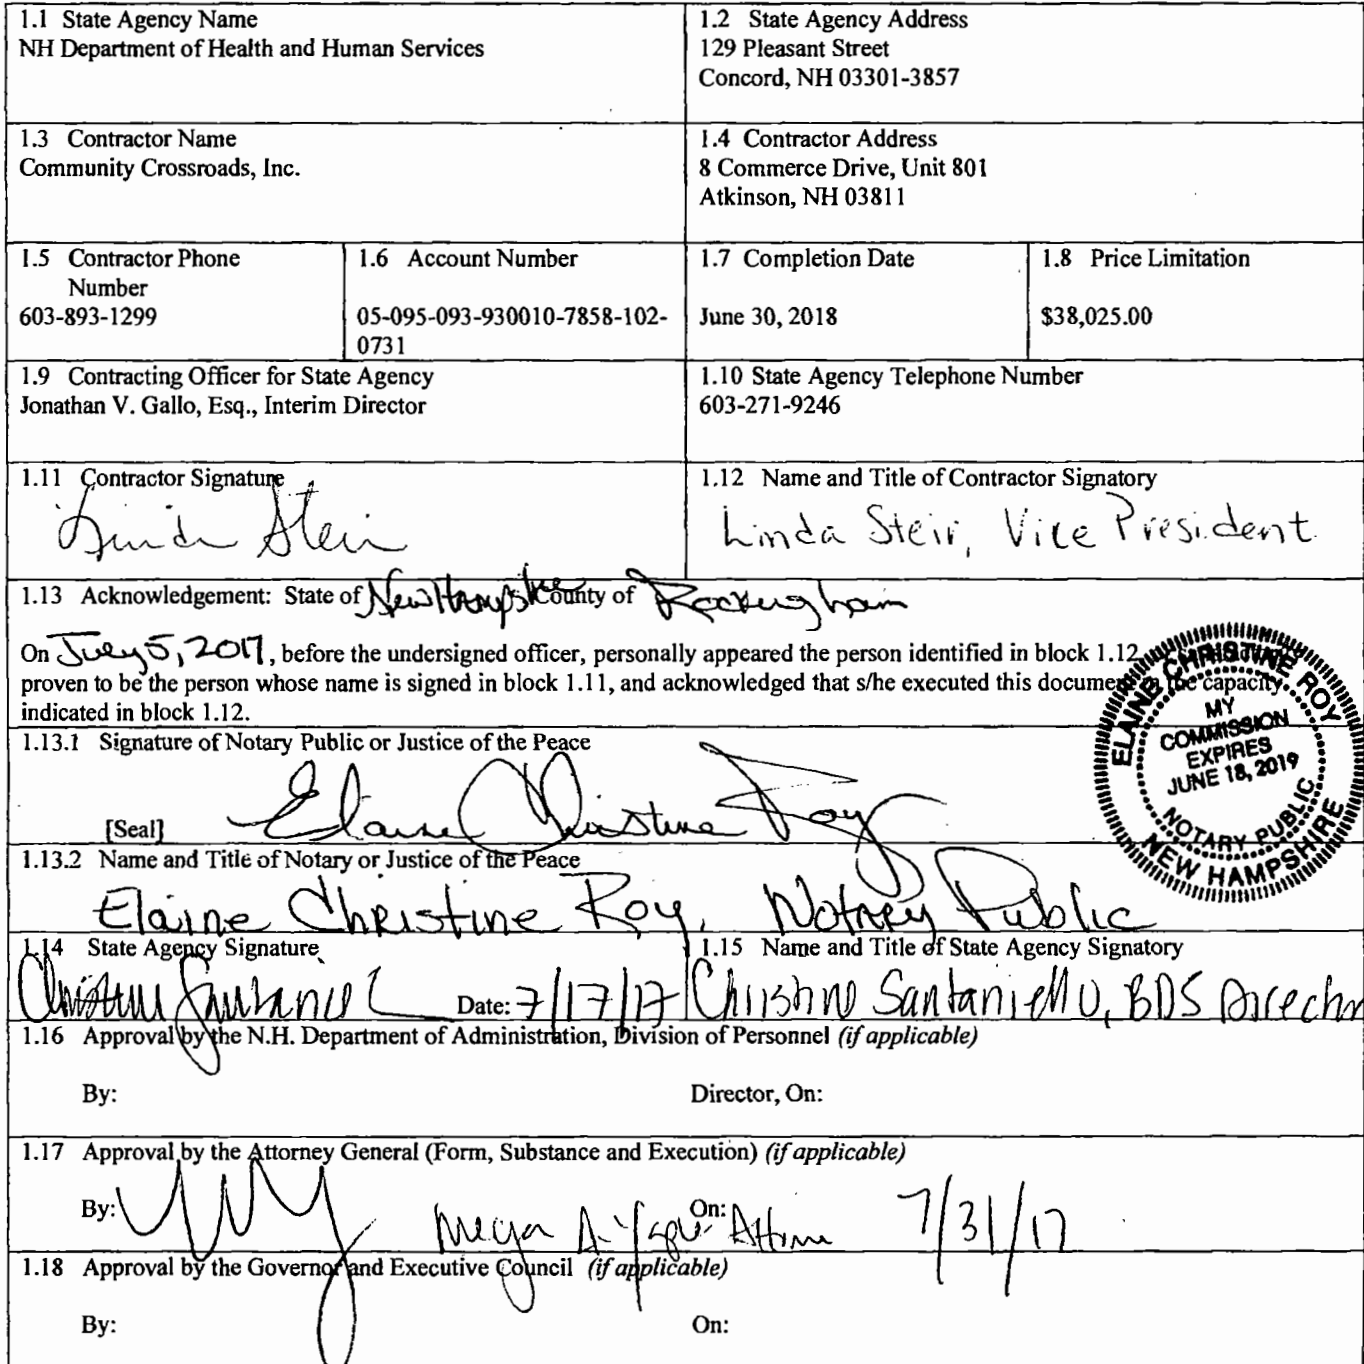 1.1 State Agency Name
NH Department of Health and Human Services
1.2 State Agency Address
129 Pleasant Street
Concord, NH 03301-3857
1.3 Contractor Name
Community Crossroads, Inc.
1.4 Contractor Address
8 Commerce Drive, Unit 801
Atkinson, NH 03811
1.5 Contractor Phone
Number
603-893-1299
1.6 Account Number
05-095-093-930010-7858-102-
0731
1.7 Completion Date
June 30, 2018
1.8 Price Limitation
$38,025.00
1.9 Contracting Officer for State Agency
Jonathan V. Gallo, Esq., Interim Director
1.10 State Agency Telephone Number
603-271-9246
1.11 Contractor Signature
Linda Stein
1.12 Name and Title of Contractor Signatory
Linda Stein, Vice President
1.13 Acknowledgement: State of New Hampshire County of Rockingham
On July 5, 2017, before the undersigned officer, personally appeared the person identified in block 1.12,
proven to be the person whose name is signed in block 1.11, and acknowledged that s/he executed this document in the capacity
indicated in block 1.12.
ELAINE CHRISTINE ROY
MY
COMMISSION
EXPIRES
JUNE 18, 2019
NOTARY PUBLIC
NEW HAMPSHIRE
1.13.1 Signature of Notary Public or Justice of the Peace
Elaine Christine Roy
[Seal]
1.13.2 Name and Title of Notary or Justice of the Peace
Elaine Christine Roy, Notary Public
1.14 State Agency Signature
Christine Santaniello
Date: 7/17/17
1.15 Name and Title of State Agency Signatory
Christine Santaniello, BDS Director
1.16 Approval by the N.H. Department of Administration, Division of Personnel (if applicable)
By: Director, On:
1.17 Approval by the Attorney General (Form, Substance and Execution) (if applicable)
By: On: 7/31/17
1.18 Approval by the Governor and Executive Council (if applicable)
By: On: